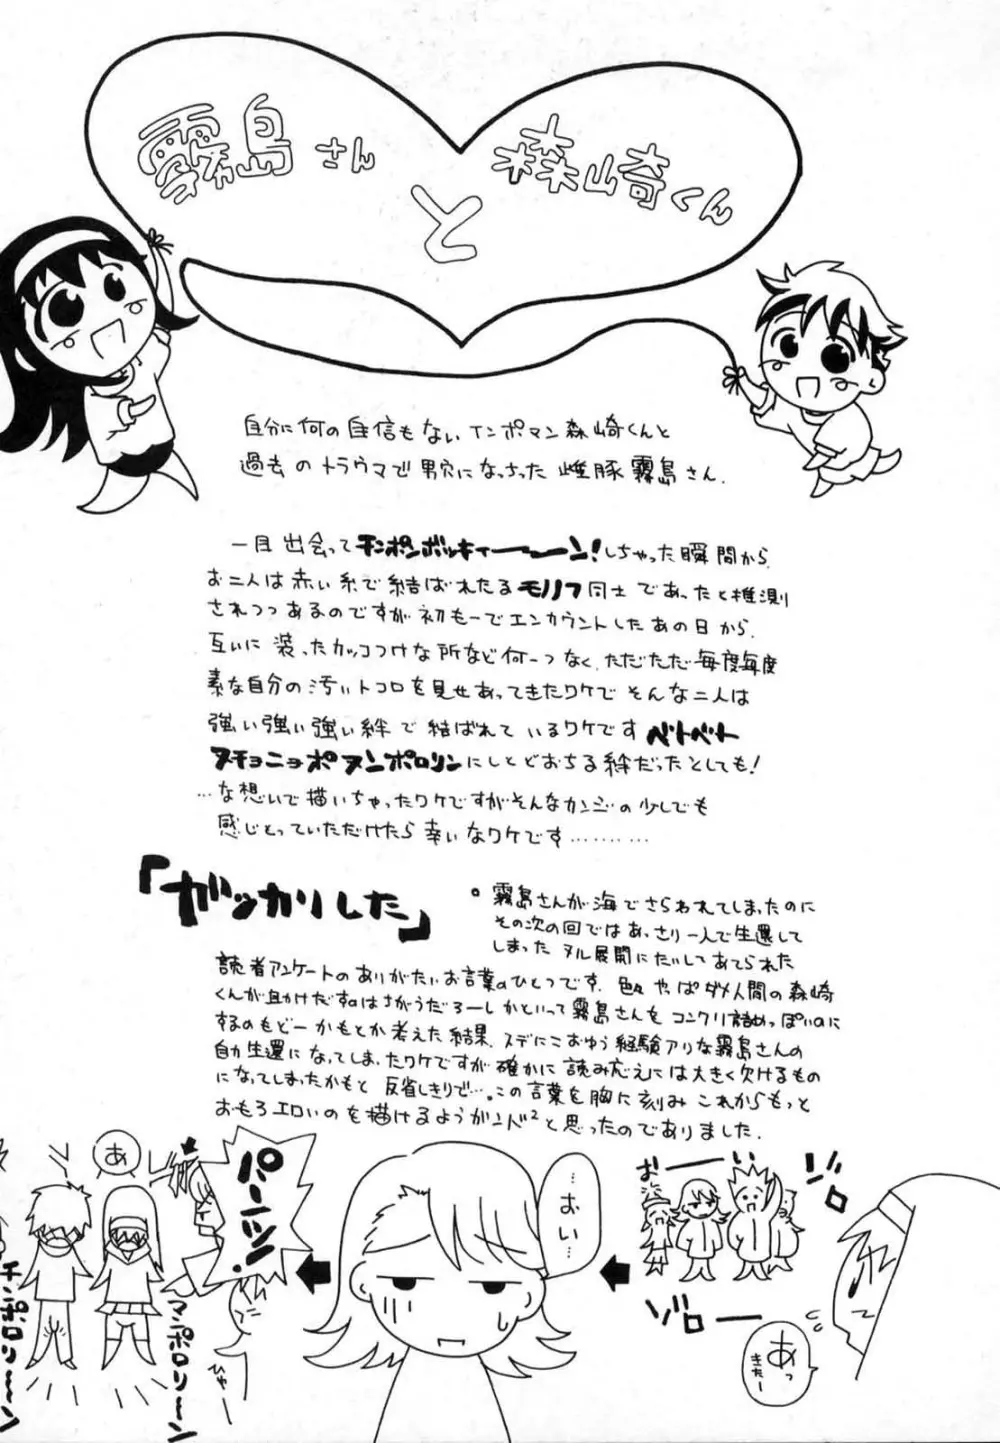 霧島さん
と
森崎くん
自分に何の自信もないインポマン森崎くんと
過去のトラウマで男穴になっちった雌豚霧島さん.
一目出会ってチンポンボッキィーーン!しちゃった瞬間から.
お二人は赤い糸で結ばれたるモノノフ同士であったと推測
されつつあるのですが初もーでエンカウントしたあの日から.
互いに装ったカッコつけな所など何一つなく、ただただ毎度毎度
素な自分の汚いトコロを見せあってきたワケでそんな二人は
強い強い強い絆で結ばれているワケです ベトベト
ヌチョニョポヌンポロリンにしとどおちる絆だったとしても!
…な想いで描いちゃったワケですがそんなカンジの少しでも
感じとっていただけたら幸いなワケです………
「ガッカリした」
。霧島さんが海でさらわれてしまったのに
その次の回ではあっさり一人で生還して
しまったヌル展開にたいしてあてられた
読者アンケートのありがたいお言葉のひとつです. 色々やっぱダメ人間の森崎
くんが助けだすのはちがうだろーしかといって霧島さんをコンクリ詰めっぽいのに
するのもどーかもとか考えた結果、スデにこおゆう経験アリな霧島さんの
自力生還になってしまったワケですが確かに読み応えには大きく欠けるもの
になってしまったかもと 反省しきりで…。この言葉を胸に刻みこれからもっと
おもろエロいのを描けるようガンバ²と思ったのでありました.
おーい
ゾロ
ゾロー
あっ
きたー
…おい…
パーンッ!
あ
ひゃー
マンポロリーーン
チンポロリーーン